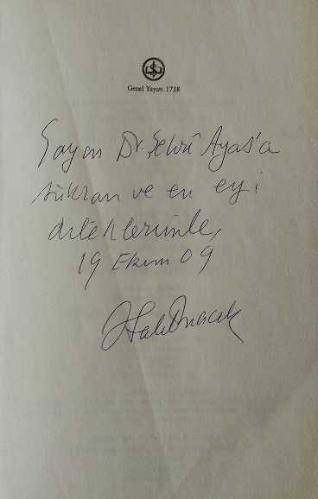 Genel Yayın: 1738
Sayın Dr. Şehsü Ayas'a
şükran ve en eyi
dileklerimle,
19 Ekim 09
Halil İnalcık